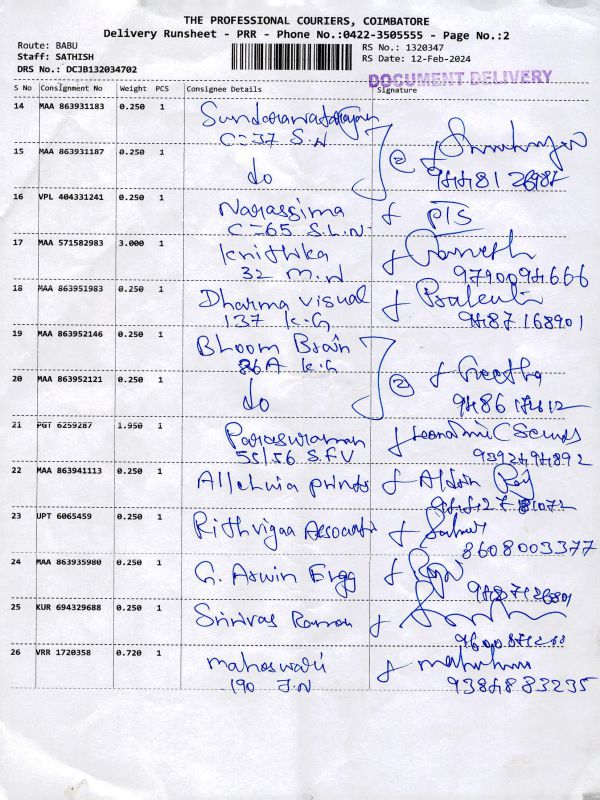 THE PROFESSIONAL COURIERS, COIMBATORE
Delivery Runsheet - PRR - Phone No.:0422-3505555 - Page No.:2
Route: BABU
Staff: SATHISH
DRS No.: DCJB132034702
RS No.: 1320347
RS Date: 12-Feb-2024
DOCUMENT DELIVERY
S No Consignment No Weight PCS Consignee Details Signature
14 MAA 863931183 0.250 1
C-37 S.N
15 MAA 863931187 0.250 1 do
2
16 VPL 404331241 0.250 1 Narassima
C-65 S.L.N.
17 MAA 571582983 3.000 1 Krithika
32 M.N
9790094666
18 MAA 863951983 0.250 1 Dharma Visual
137 K.G
9487168901
19 MAA 863952146 0.250 1 Bhoom Brain
86A K.G
20 MAA 863952121 0.250 1 do
2 Geetha
9486174612
21 PGT 6259287 1.950 1 Parasuraman
55/56 S.F.V
9392494892
22 MAA 863941113 0.250 1 Alleluia prints
23 UPT 6065459 0.250 1 Rithvigaa
8608003377
24 MAA 863935980 0.250 1 G. Aswin Engg
25 KUR 694329688 0.250 1 Srinivas Raman
26 VRR 1720358 0.720 1 Maheswari
190 J.N
9384883235